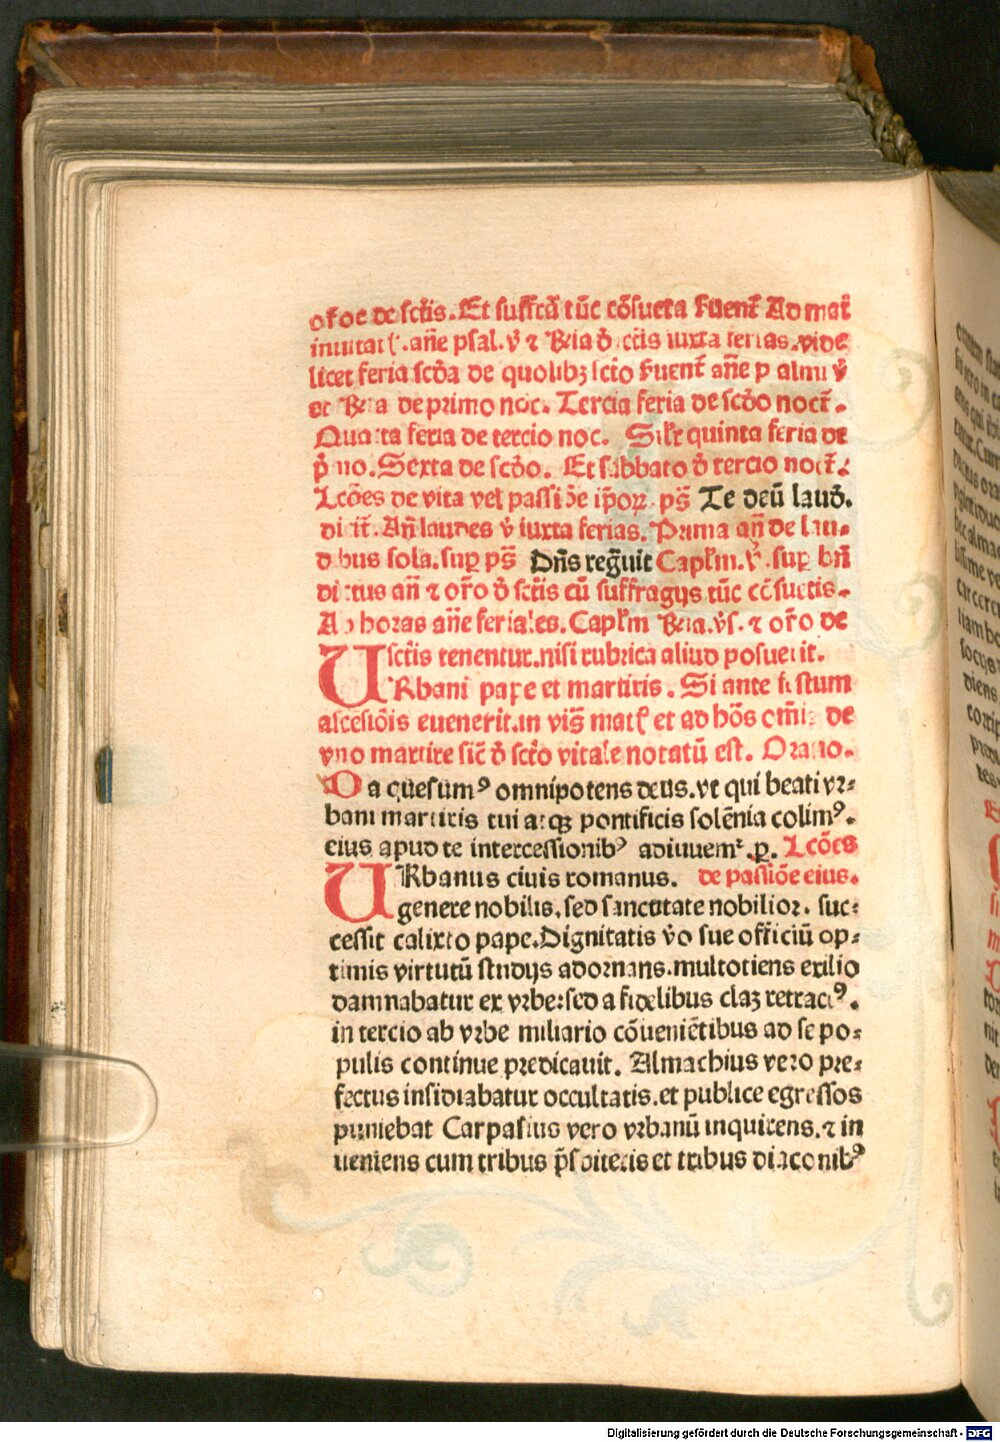 de sctis. Et suffrā tūc cōsueta Fuent̄ Ad mat̄
inuitat . añe psal. v̄ ⁊ iuxta ferias. vide
licet feria scďa de quolibꝫ Fuent̄ añe v̄
de primo noc. Tercia feria de scďo noct̄.
Quarta feria de tercio noc. Silr quinta feria de
p̄ no. Sexta de scďo. Et sabbato ď tercio noct̄.
Lcōes de vita vel passiōe ip̄oꝝ ps̄ Te deū lauď.
An̄ laudes v̄ iuxta ferias. Prima an̄ de lau-
d bus sola. suꝑ ps̄ Dn̄s regͣuit Caplm. v̄. suꝑ bn̄
dictus an̄ ⁊ oro ď sctis cū suffragijs tūc cōsuetis.
Ad horas añe feriales. Caplm v̄s. ⁊ oro de
sctis tenentur. nisi rubrica aliud posuerit.
URbani pape et martiris. Si ante festum
ascēsiōis euenerit. in vigͣ et ad hōs de
vno martire sic̄ ď scto vitale notatū est. Oratio.
Da quesumꝰ omnipotens deus. vt qui beati vr-
bani martiris tui atqꝫ pontificis solēnia colimꝰ.
eius apud te intercessionibꝰ adiuuemᷣ. ꝑ. Lcōes
URbanus ciuis romanus. de passiōe eius.
genere nobilis, sed sanctitate nobilior. suc-
cessit calixto pape. Dignitatis v̊o sue officiū op-
timis virtutū studijs adornans. multotiens exilio
damnabatur ex vrbe: sed a fidelibus claꝫ retractꝰ.
in tercio ab vrbe miliario cōueniētibus ad se po-
pulis continue predicauit. Almachius vero pre-
fectus insidiabatur occultatis. et publice egressos
puniebat Carpasius vero vrbanū inquirens. ⁊ in
ueniens cum tribus p̄sbiteris et tribus diaconibꝰ
Digitalisierung gefördert durch die Deutsche Forschungsgemeinschaft - DFG